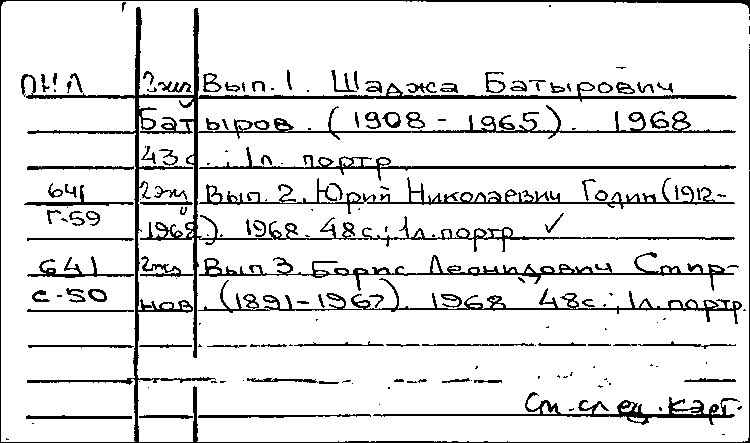 ОНЛ 2экз Вып. 1. Шаджа Батырович
Батыров. (1908 - 1965). 1968
43 с.; 1л. портр
641 2экз Вып. 2. Юрий Николаевич Годин (1912-
Г-59 1968). 1968. 48 с.; 1л. портр. ✓
641 2экз Вып 3. Борис Леонидович Смир-
С-50 нов. (1891-1967). 1968 48с.; 1л. портр.
См. спец. карт.